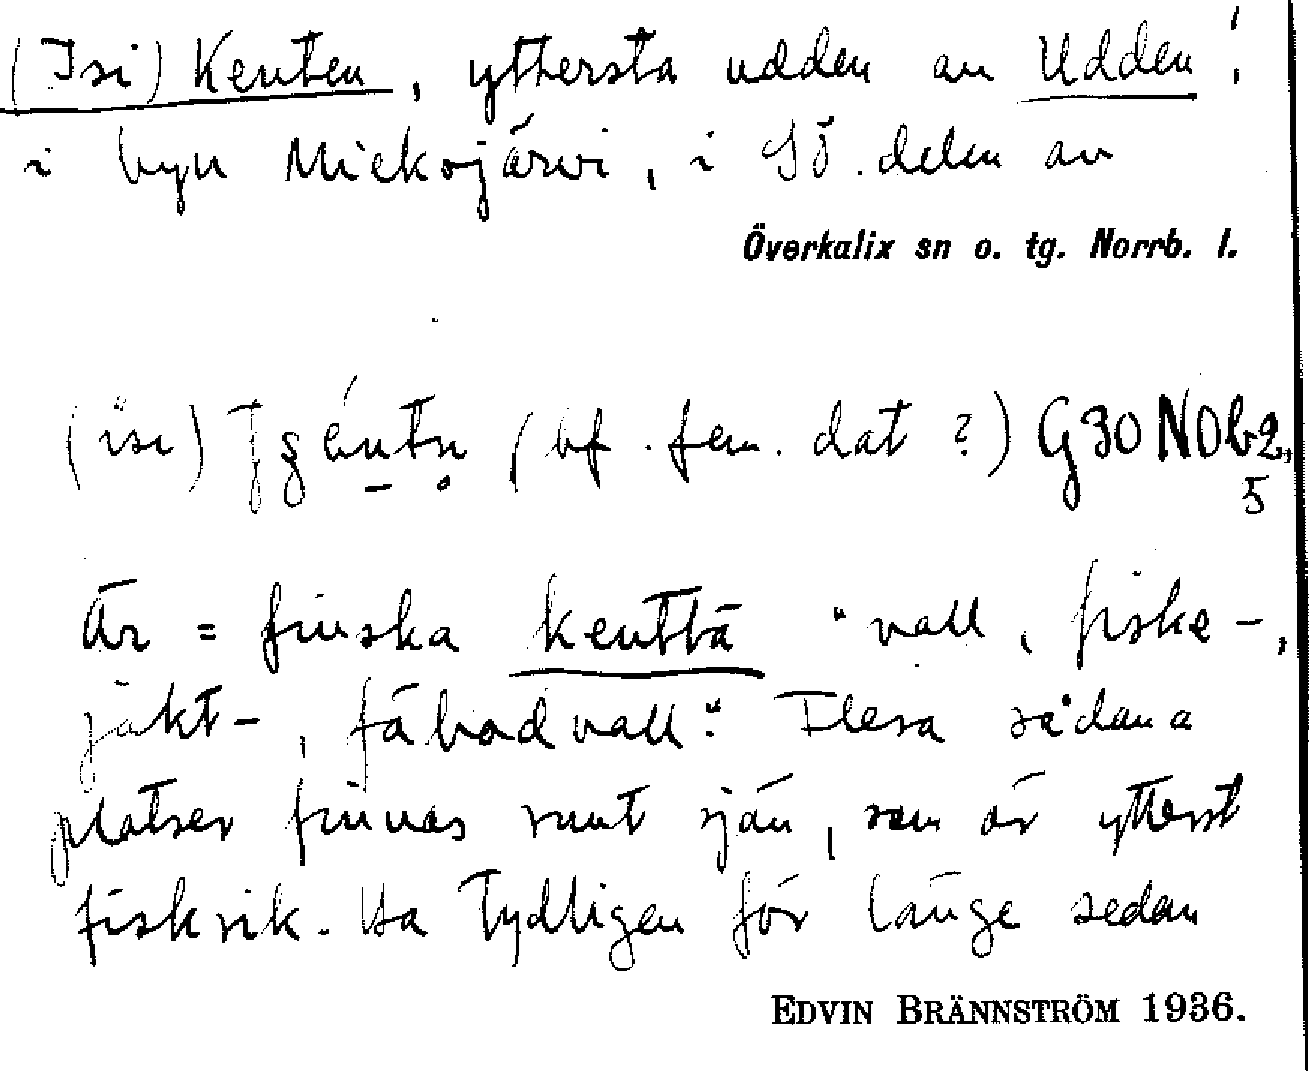 (Isi) Kenten, yttersta udden av Udden
i byn Miekojärvi, i SÖ. delen av
Överkalix sn o. tg. Norrb. l.
(bf. fem. dat ?) G30 NOb2,
5
Är = finska kenttä "vall, fiske-,
jakt-, fäbodvall". Flera sådana
platser finnas runt sjön, som är ytterst
fiskrik. Ha tydligen för länge sedan
EDVIN BRÄNNSTRÖM 1936.